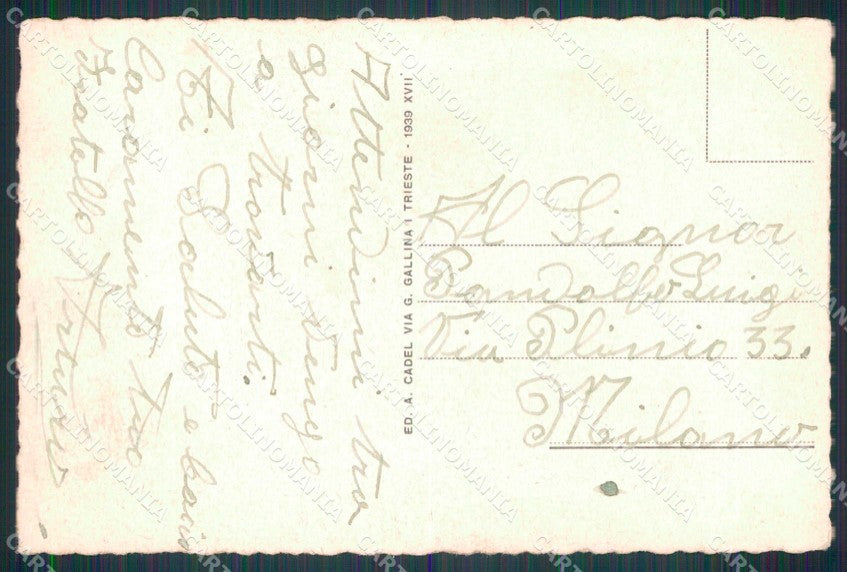 Attendimi tra
giorni vengo
a trovarti.
Ti Saluto e bacio
Caramente tuo
Fratello Arturo
ED. A. CADEL VIA G. GALLINA I TRIESTE - 1939 XVII
Al Signor
Pandolfo Luigi
Via Plinio 33.
Milano
CARTOLINOMANIA